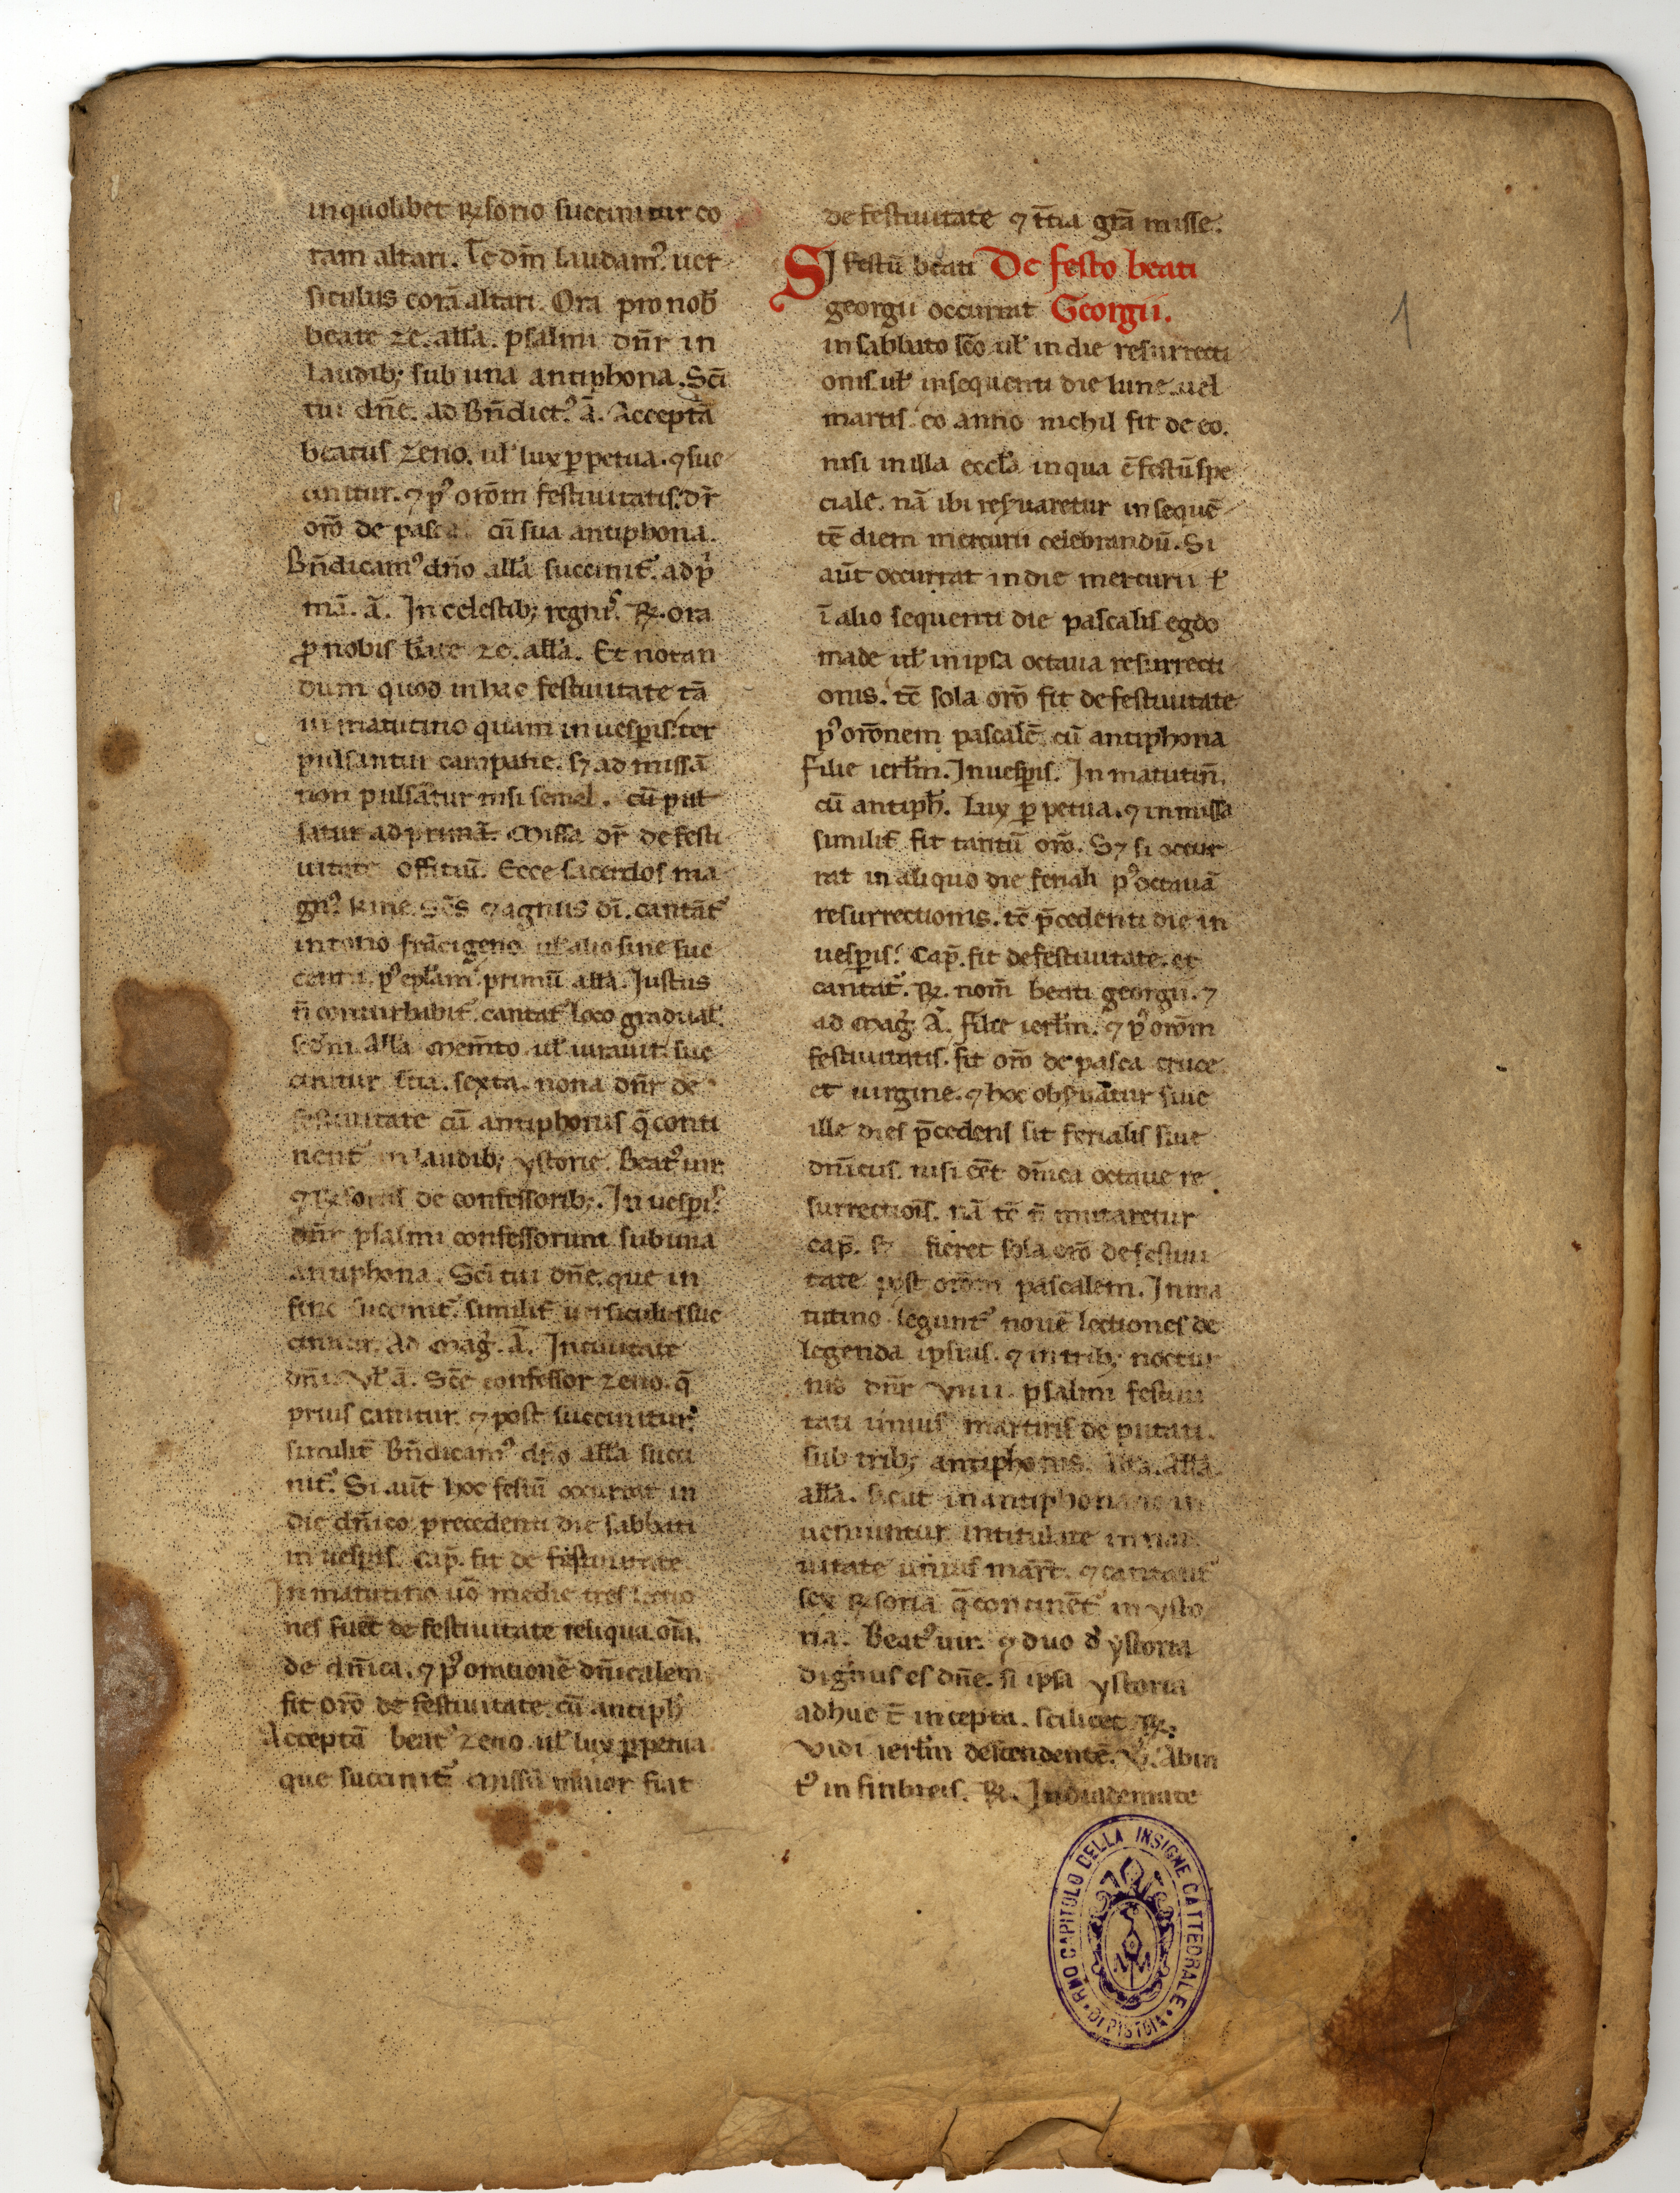 in quolibet ꝶsorio succinitur co
ram altari. Te dm̄ laudamꝰ. uer
siculus corā altari. Ora pro nob̄
beate ze. all'a. psalmi dn̄r in
laudib; sub una antiphona. Sc̄i
tui dn̄e. ad Bn̄dictꝰ. ā. Acceptā
beatus zeno. ul' lux ꝑpetua. ⁊ suc
cinitur. ⁊ pꝰ orōm festiuitatis. dr̄
orō de pasca cū sua antiphona.
Bn̄dicamꝰ dn̄o all'a succinit᷑. ad p'
mā. ā. In celestib; regnis. ꝶ. ora
ꝓ nobis b̄ate ze. all'a. Et notan
dum quod in hac festiuitate tā
in matutino quam in uesꝑis. ter
pulsantur campane. sꝫ ad missā
non pulsātur nisi semel. cū pul
satur ad primā. Missa dr̄ de festi
uitate offitiū. Ecce sacerdos ma
gnꝰ. kirie. Sc̄s ⁊ agnus dī. cantāt᷑
in tono frācigeno ul' alio sine suc
centu. pꝰ epl'am. primū all'a. Justus
n̄ conturbabit᷑. cantat᷑ loco gradual'.
sec̄di. All'a Mem̄to ul' iurauit. suc
cinitur. t'cia. sexta. nona dn̄r de
festiuitate cū antiphonis q̄ conti
nent᷑ in laudib; ystorie. Beatꝰ uir.
⁊ ꝶsoriis de confessorib;. In uesꝑis
dn̄r psalmi confessorum sub una
antiphona. Sc̄i tui dn̄e. que in
fine succinit᷑. similit᷑ uersiculus suc
cinitur. Ad Maḡ. ā. In ciuitate
dn̄i. Vl' ā. Sc̄e confessor zeno. q̄
prius canitur. ⁊ post succinitur.
similit᷑ Bn̄dicamꝰ dn̄o all'a succi
nit᷑. Si aūt hoc festū occurrat in
die dn̄ico precedenti die sabbati
in uesꝑis. Cap̄. fit de festiuitate.
In matutino uō medie tres lectio
nes fuēt de festiuitate reliqua om̄a.
de dn̄ica. ⁊ pꝰ orationē dn̄icalem
fit orō de festiuitate. cū antiph'
Acceptā beatꝰ zeno. ul' lux ꝑpetua
que succinit᷑. Missa maior fiat
de festiuitate ⁊ t̄cia grā misse.
SI festū beati De festo beati
georgii occurrat Georgii.
in sabbato sc̄o. ul' in die resurrecti
onis. ul' in sequenti die lune. uel
martis. eo anno nichil fit de eo.
nisi in illa eccl'a in qua ē festū spe
ciale. nā ibi res̄uaretur in sequē
tē diem mercurii celebrandū. Si
aūt occurrat in die mercurii ul'
ī alio sequenti die pascalis egdo
made ul' in ipsa octaua resurrecti
onis. tc̄ sola orō fit de festiuitate
pꝰ orōnem pascalē. cū antiphona
Filie ierl'm. In uesꝑis. In matutin̄.
cū antiph'. Lux ꝑpetua. ⁊ in missa
similit᷑ fit tantū orō. Sꝫ si occur
rat in aliquo die feriali pꝰ octauā
resurrectionis. tc̄ p̄cedenti die in
uesꝑis. Cap̄. fit de festiuitate. et
cantat᷑. ꝶ. nom̄ beati georgii. ⁊
ad Maḡ. Ā. filie ierl'm. ⁊ pꝰ orōm
festiuitatis. fit orō de pasca cruce
et uirgine. ⁊ hoc obs̄uatur siue
ille dies p̄cedens sit ferialis siue
dn̄icus. nisi eēt dn̄ica octaue re
surrectiōis. nā tc̄ n̄ mutaretur
cap̄. sꝫ fieret sola orō de festiui
tate post orōm pascalem. In ma
tutino legunt᷑ nouē lectiones de
legenda ipsius. ⁊ in trib; noctur
nis dn̄r VIIII. psalmi festiui
tati unius martiris deputati.
sub trib; antiphonis. All'a.
all'a. sicut in antiphonario in
ueniuntur intitulate in nati
uitate unius mart̄. ⁊ cantant᷑
sex ꝶsoria q̄ continēt᷑ in ysto
ria. Beatꝰ uir. ⁊ duo d' ystoria
dignus es dn̄e. si ipsa ystoria
adhuc ē incepta. scilicet ꝶ.
Vidi ierl'm descendentē. V̄. Ab in
tꝰ in fimbreis. ꝶ. In diademate
1
RMO CAPITOLO DELLA INSIGNE CATTEDRALE • DI PISTOIA •